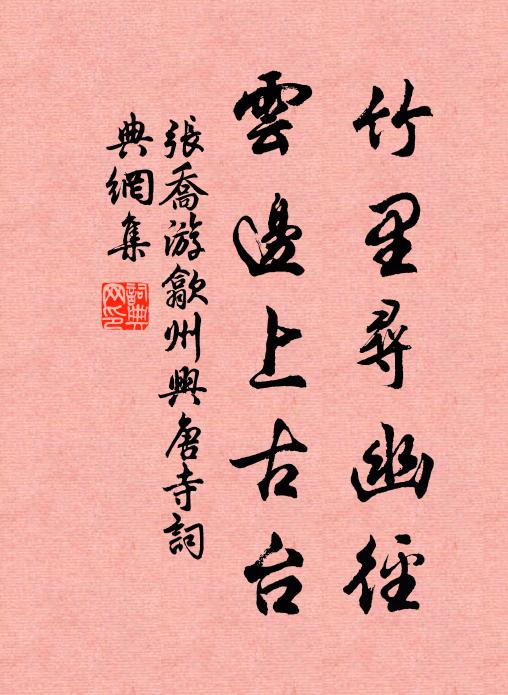 竹里尋幽徑
雲邊上古台
張喬游歙州興唐寺詞
典網集
詞典
网印